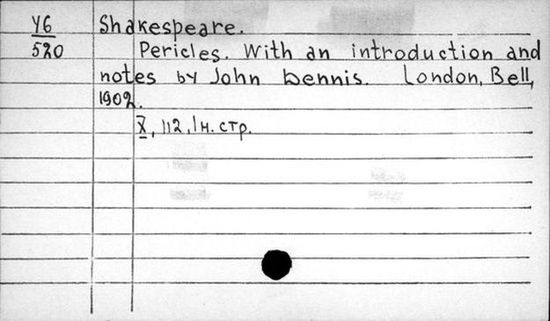 У6
520
Shakespeare.
Pericles. With an introduction and
notes by John Dennis. London, Bell,
1902.
X, 112, 1 н. стр.